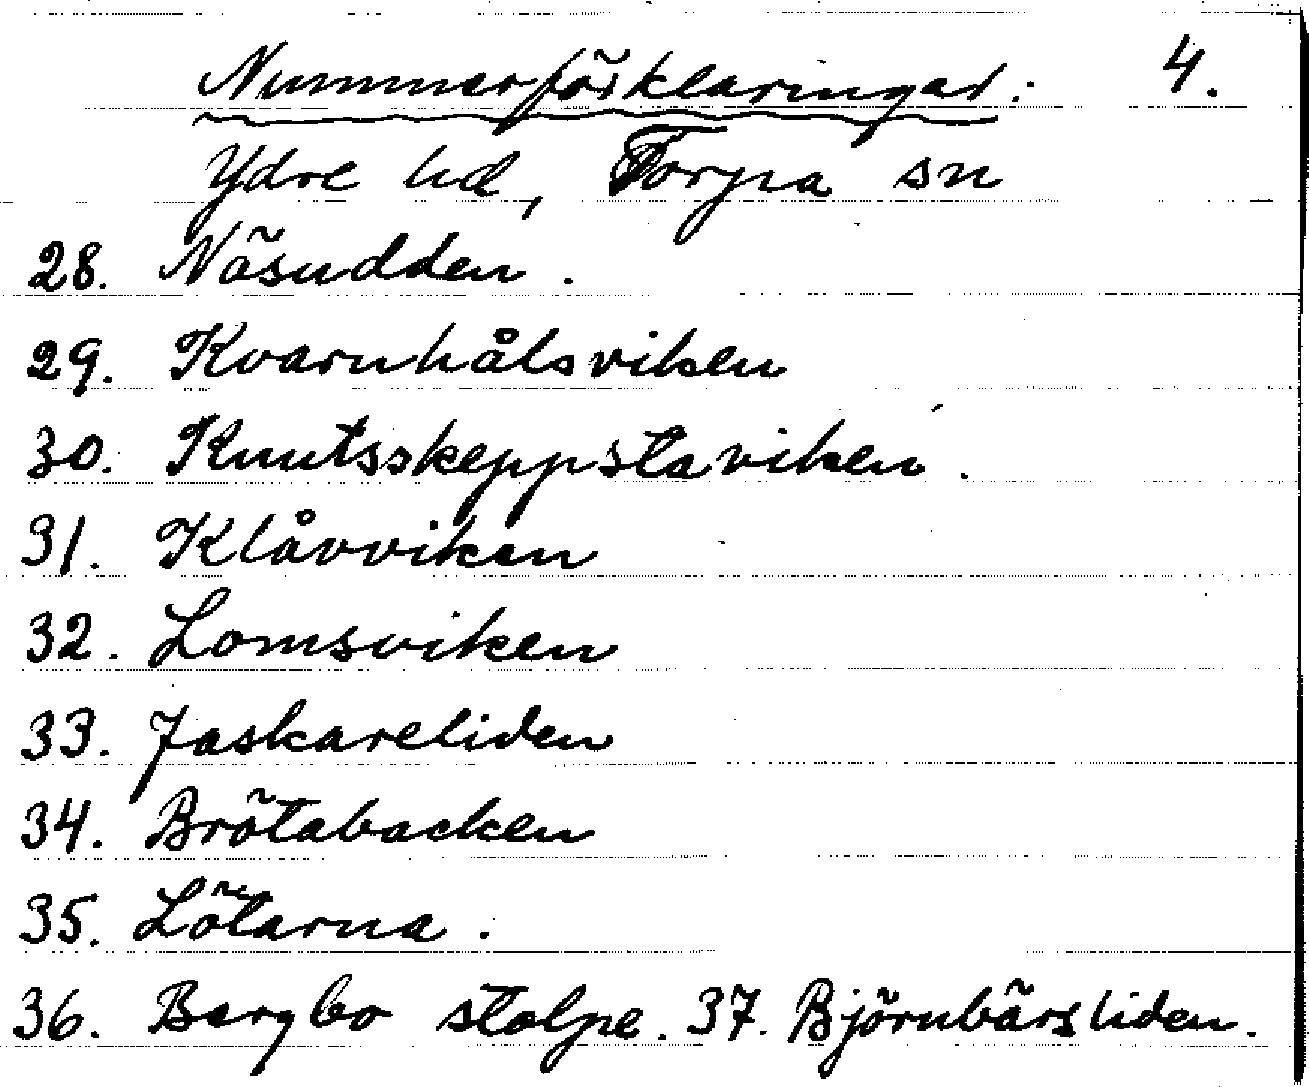 Nummerförklaringar: 4.
Ydre hd, Torpa sn
28. Näsudden.
29. Kvarnhålsviken
30. Knutsskeppstaviken.
31. Klåvviken
32. Lomsviken
33. Jaskareliden
34. Brötabacken
35. Lötarna.
36. Bergbo stolpe. 37. Björnbärsliden.